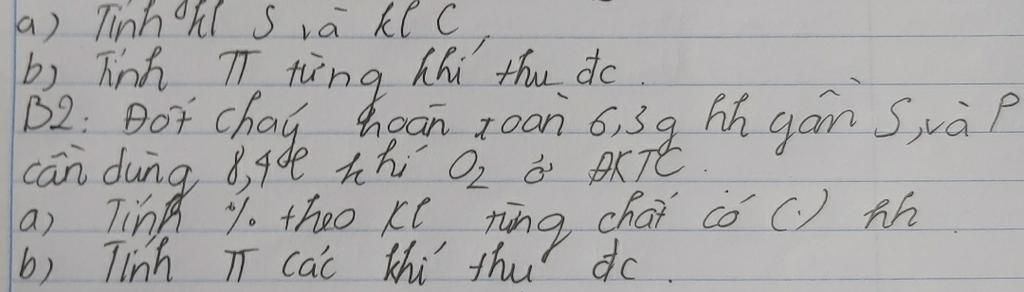 a) Tính kl S và kl C.
b) Tính π từng khí thu đc.
B2: Đốt cháy hoàn toàn 6,3g hh gồm S, và P
cần dùng 8,4l khí O2 ở ĐKTC.
a) Tính % theo kl từng chất có (.) hh.
b) Tính π các khí thu đc.